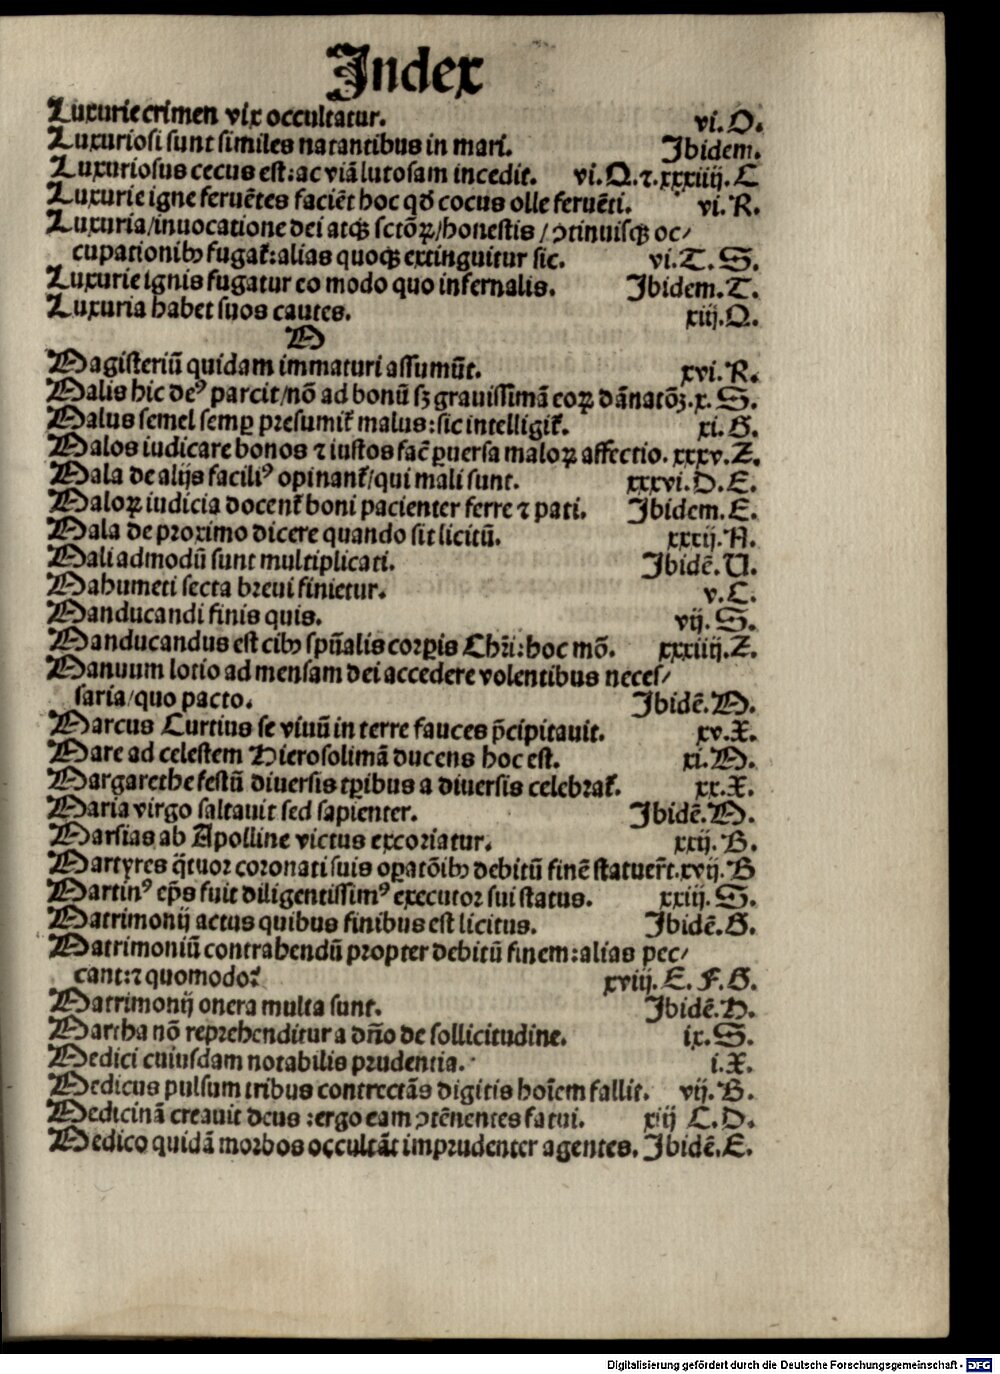 Index
Luxurie crimen vix occultatur. vi.O.
Luxuriosi sunt similes natantibus in mari. Ibidem.
Luxuriosus cecus est:ac viā lutosam incedit. vi.Q.⁊.xxxiiij.C
Luxurie igne feruētes faciēt hoc qď cocus olle feruēti. vi.R.
Luxuria/inuocatione dei atqꝫ sctōꝝ/honestis/ꝯtinuisqꝫ oc/
cupationibꝰ fugat᷑:alias quoqꝫ extinguitur sic. vi.T.S.
Luxurie ignis fugatur eo modo quo infernalis. Ibidem.T.
Luxuria habet suos cautes. xiij.Q.
M
Magisteriū quidam immaturi assumūt. xvi.R.
Malis hic deꝰ parcit/nō ad bonū sꝫ grauissimā eoꝝ dānatōꝫ.x.S.
Malus semel semꝑ presumit᷑ malus:sic intelligit᷑. xi.G.
Malos iudicare bonos ⁊ iustos fac̄ ꝑuersa maloꝝ affectio. xxxv.Z.
Mala de alijs faciliꝰ opinant᷑/qui mali sunt. xxxvi.D.E.
Maloꝝ iudicia docent᷑ boni pacienter ferre ⁊ pati. Ibidem.E.
Mala de proximo dicere quando sit licitū. xxxij.N.
Mali admodū sunt multiplicati. Ibidē.V.
Mahumeti secta breui finietur. v.C.
Manducandi finis quis. vij.S.
Manducandus est cibꝰ spūalis corꝑis Chri̅:hoc mō. xxxiiij.Z.
Manuum lotio ad mensam dei accedere volentibus neces/
saria/quo pacto. Ibidē.M.
Marcus Curtius se viuū in terre fauces p̄cipitauit. xv.X.
Mare ad celestem Hierosolimā ducens hoc est. xi.M.
Margarethe festū diuersis tꝑibus a diuersis celebrat᷑. xx.X.
Maria virgo saltauit sed sapienter. Ibidē.M.
Marsias ab Apolline victus excoriatur. xxij.B.
Martyres q̄tuor coronati suis oꝑatōibꝰ debitū finē statuer̄t.xvij.B
Martinꝰ ep̄s fuit diligentissimꝰ executor sui status. xxiij.S.
Matrimonij actus quibus finibus est licitus. Ibidē.G.
Matrimoniū contrahendū propter debitū finem:alias pec/
cant:⁊ quomodo? xviij.E.F.G.
Matrimonij onera multa sunt. Ibidē.H.
Martha nō reprehenditur a dn̄o de sollicitudine. ix.S.
Medici cuiusdam notabilis prudentia. i.X.
Medicus pulsum tribus contrectās digitis hoīem fallit. vij.B.
Medicinā creauit deus:ergo eam ꝯtēnentes fatui. xij C.D.
Medico quidā morbos occultāt imprudenter agentes. Ibidē.E.
Digitalisierung gefördert durch die Deutsche Forschungsgemeinschaft - DFG